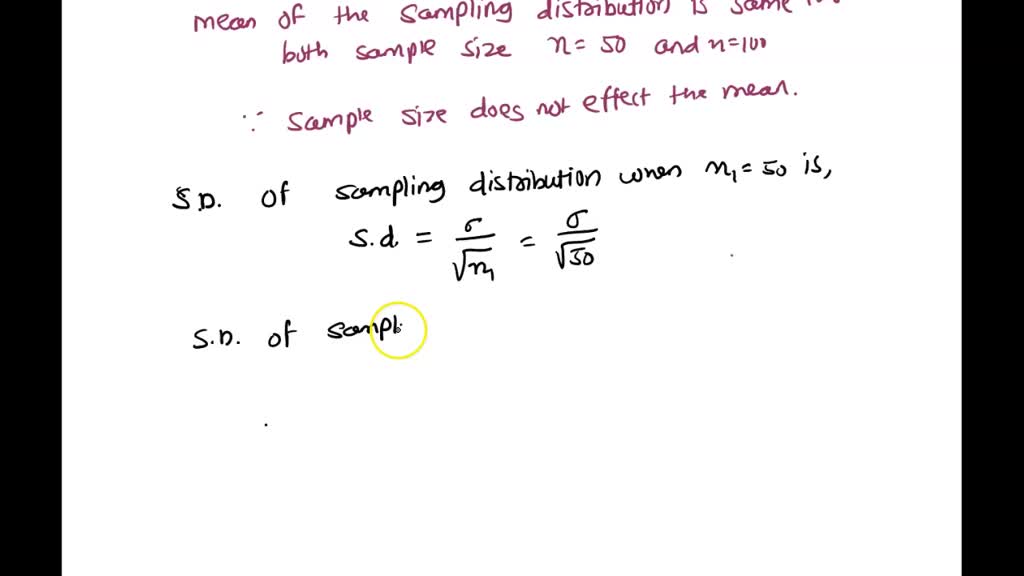 mean of the sampling distribution is same
both sample size n = 50 and n=100
∵ sample size does not effect the mean.
S.D. of sampling distribution when n₁ = 50 is,
s.d = σ/√n₁ = σ/√50
S.D. of sampl